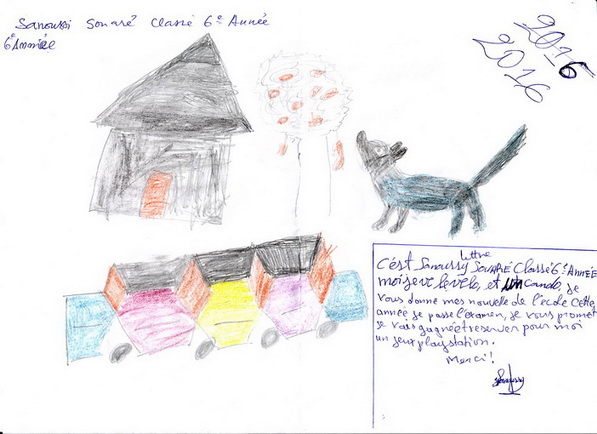 Sanoussi Souaré Classe 6e Année
6e Année
2015
2016
Lettre
C'est Sanoussy SouARE Classé 6e ANNÉE
moi et
je
vous donne mes nouvelle de l'école Cette
année je passe l'éxamen, je vous promet
je vais gagné et reserver pour moi
un jeux playstation.
Merci!